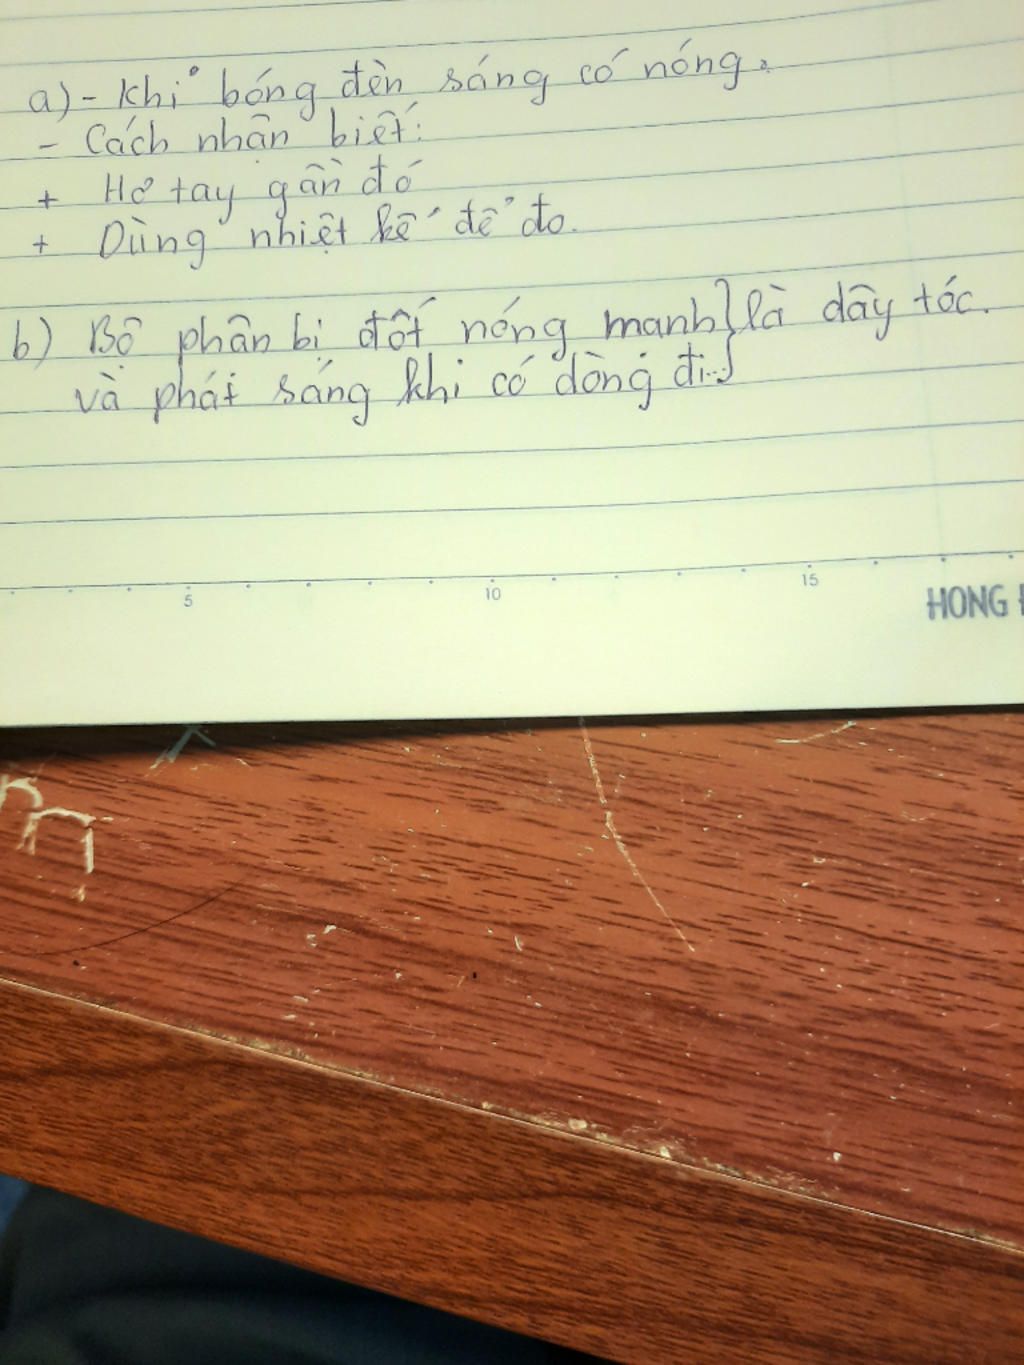 a) - Khi bóng đèn sáng có nóng.
- Cách nhận biết:
+ Hơ tay gần đó
+ Dùng nhiệt kế để đo.
b) Bộ phận bị đốt nóng manh } là dây tóc.
và phát sáng khi có dòng đi..}
5 10 15
HONG